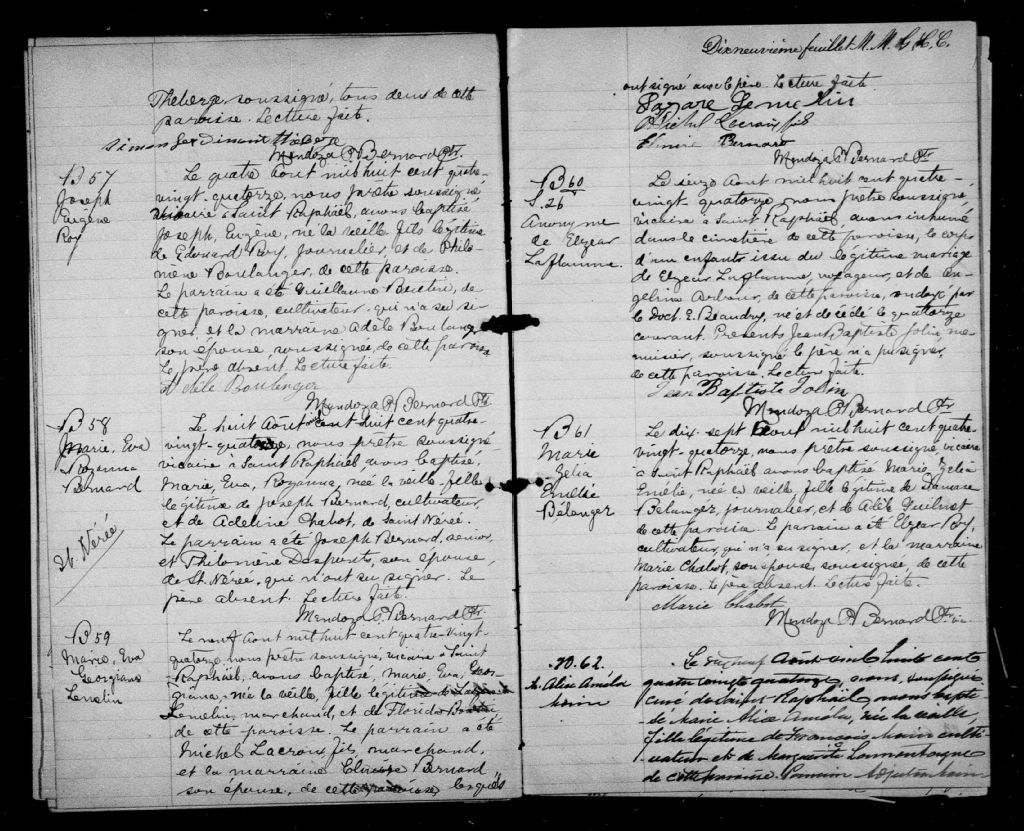 Theberge, soussigné, tous deux de cette
paroisse. Lecture faite.
Mendoza P. Bernard Ptr.
B 57
Joseph
Eugène
Roy
Le quatre Aout mil huit cent quatre-
vingt-quatorze, nous prêtre soussigné
vicaire à Saint Raphaël, avons baptisé
Joseph, Eugène, né la veille fils légitime
de Edouard Roy, Journalier, et de Philo-
mène Boulanger, de cette paroisse.
Le parrain a été Guillaume
cette paroisse, cultivateur qui n'a su si-
gner et la marraine Adèle Boulanger
son épouse, soussignée, de cette paroisse
Le père absent. Lecture faite.
Adèle Boulenger
Mendoza P. Bernard Ptr
B 58
Marie, Eva
Rozanna
Bernard
St Nérée
Le huit Aout mil huit cent quatre-
vingt-quatorze, nous prêtre soussigné
vicaire à Saint Raphaël avons baptisé,
Marie, Eva, Rozanna, née la veille fille
légitime de Joseph Bernard, cultivateur,
et de Adeline Chabot, de Saint Nérée.
Le parrain a été Joseph Bernard, senior,
et Philomène son épouse,
de St. Nérée, qui n'ont su signer. Le
père absent. Lecture faite.
Mendoza P. Bernard Ptr.
B 59
Marie, Eva
Georgiana
Lemelin
Le neuf Aout mil huit cent quatre-vingt-
quatorze, nous prêtre soussigné, vicaire à Saint
Raphaël, avons baptisé, Marie, Eva, Geor-
giana, née la veille, fille légitime de
Lemelin, marchand, et de Florida
de cette paroisse. Le parrain a été
Michel Lacroix fils, marchand,
et la marraine Bernard
son épouse, de cette paroisse, lesquels
Dixneuvième feuillet M. M. G. H. C.
ont signé avec le père. Lecture faite
Lazare Lemelin
Michel Lacroix fils
Bernard
Mendoza P. Bernard Ptr
B 60
S. 26
Anonyme
de Elzear
Laflamme.
Le seize Aout mil huit cent quatre-
vingt quatorze nous prêtre soussigné,
vicaire à Saint Raphaël, avons inhumé
dans le cimetière de cette paroisse, le corps
d'un enfant issu du légitime mariage
de Elzear Laflamme, voyageur, et de An-
gélina Arbour, de cette paroisse, ondoyé par
le Doct. E. Beaudry, né et décédé le quatorze
courant. Presents Jean Baptiste Jolin, me-
nuisier, soussigné le père n'a pu signer,
de cette paroisse. Lecture faite.
Jean Baptiste Jolin
Mendoza P. Bernard Ptr
B 61
Marie
Zelia
Emélie
Bélanger
Le dix sept Aout mil huit cent quatre-
vingt quatorze, nous prêtre soussigné, vicaire
à Saint Raphaël avons baptisé Marie, Zelia
Emélie, née la veille, fille légitime de Damase
Bélanger, journalier, et de Adèle
de cette paroisse. Le parrain a été Elzear Roy,
cultivateur, qui n'a su signer, et la marraine
Marie Chabot, son épouse, soussignée, de cette
paroisse. Le père absent. Lecture faite.
Marie Chabot
Mendoza P. Bernard Ptr.
B. 62.
M. Alice Améla
Morin
Le dix neuf Aout mil huit cent
quatre vingt quatorze, nous, soussigné
curé de Saint Raphaël avons bapti-
sé Marie Alice Améla, née la veille,
fille légitime de François Morin culti-
vateur et de Marguerite Lamontagne
de cette paroisse. Parrain Morin